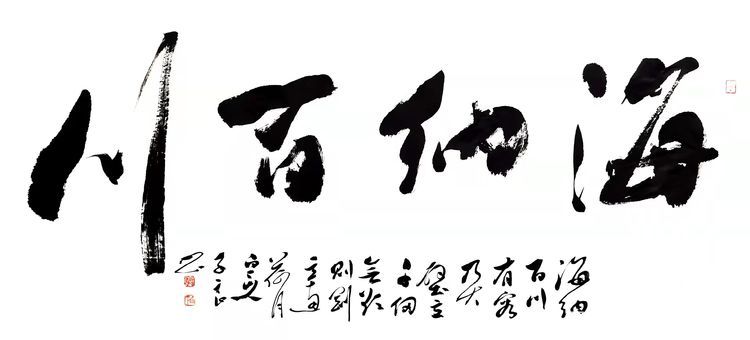 海纳百川
海纳
百川
有容
乃大
壁立
千仞
無欲
则刚
荷月